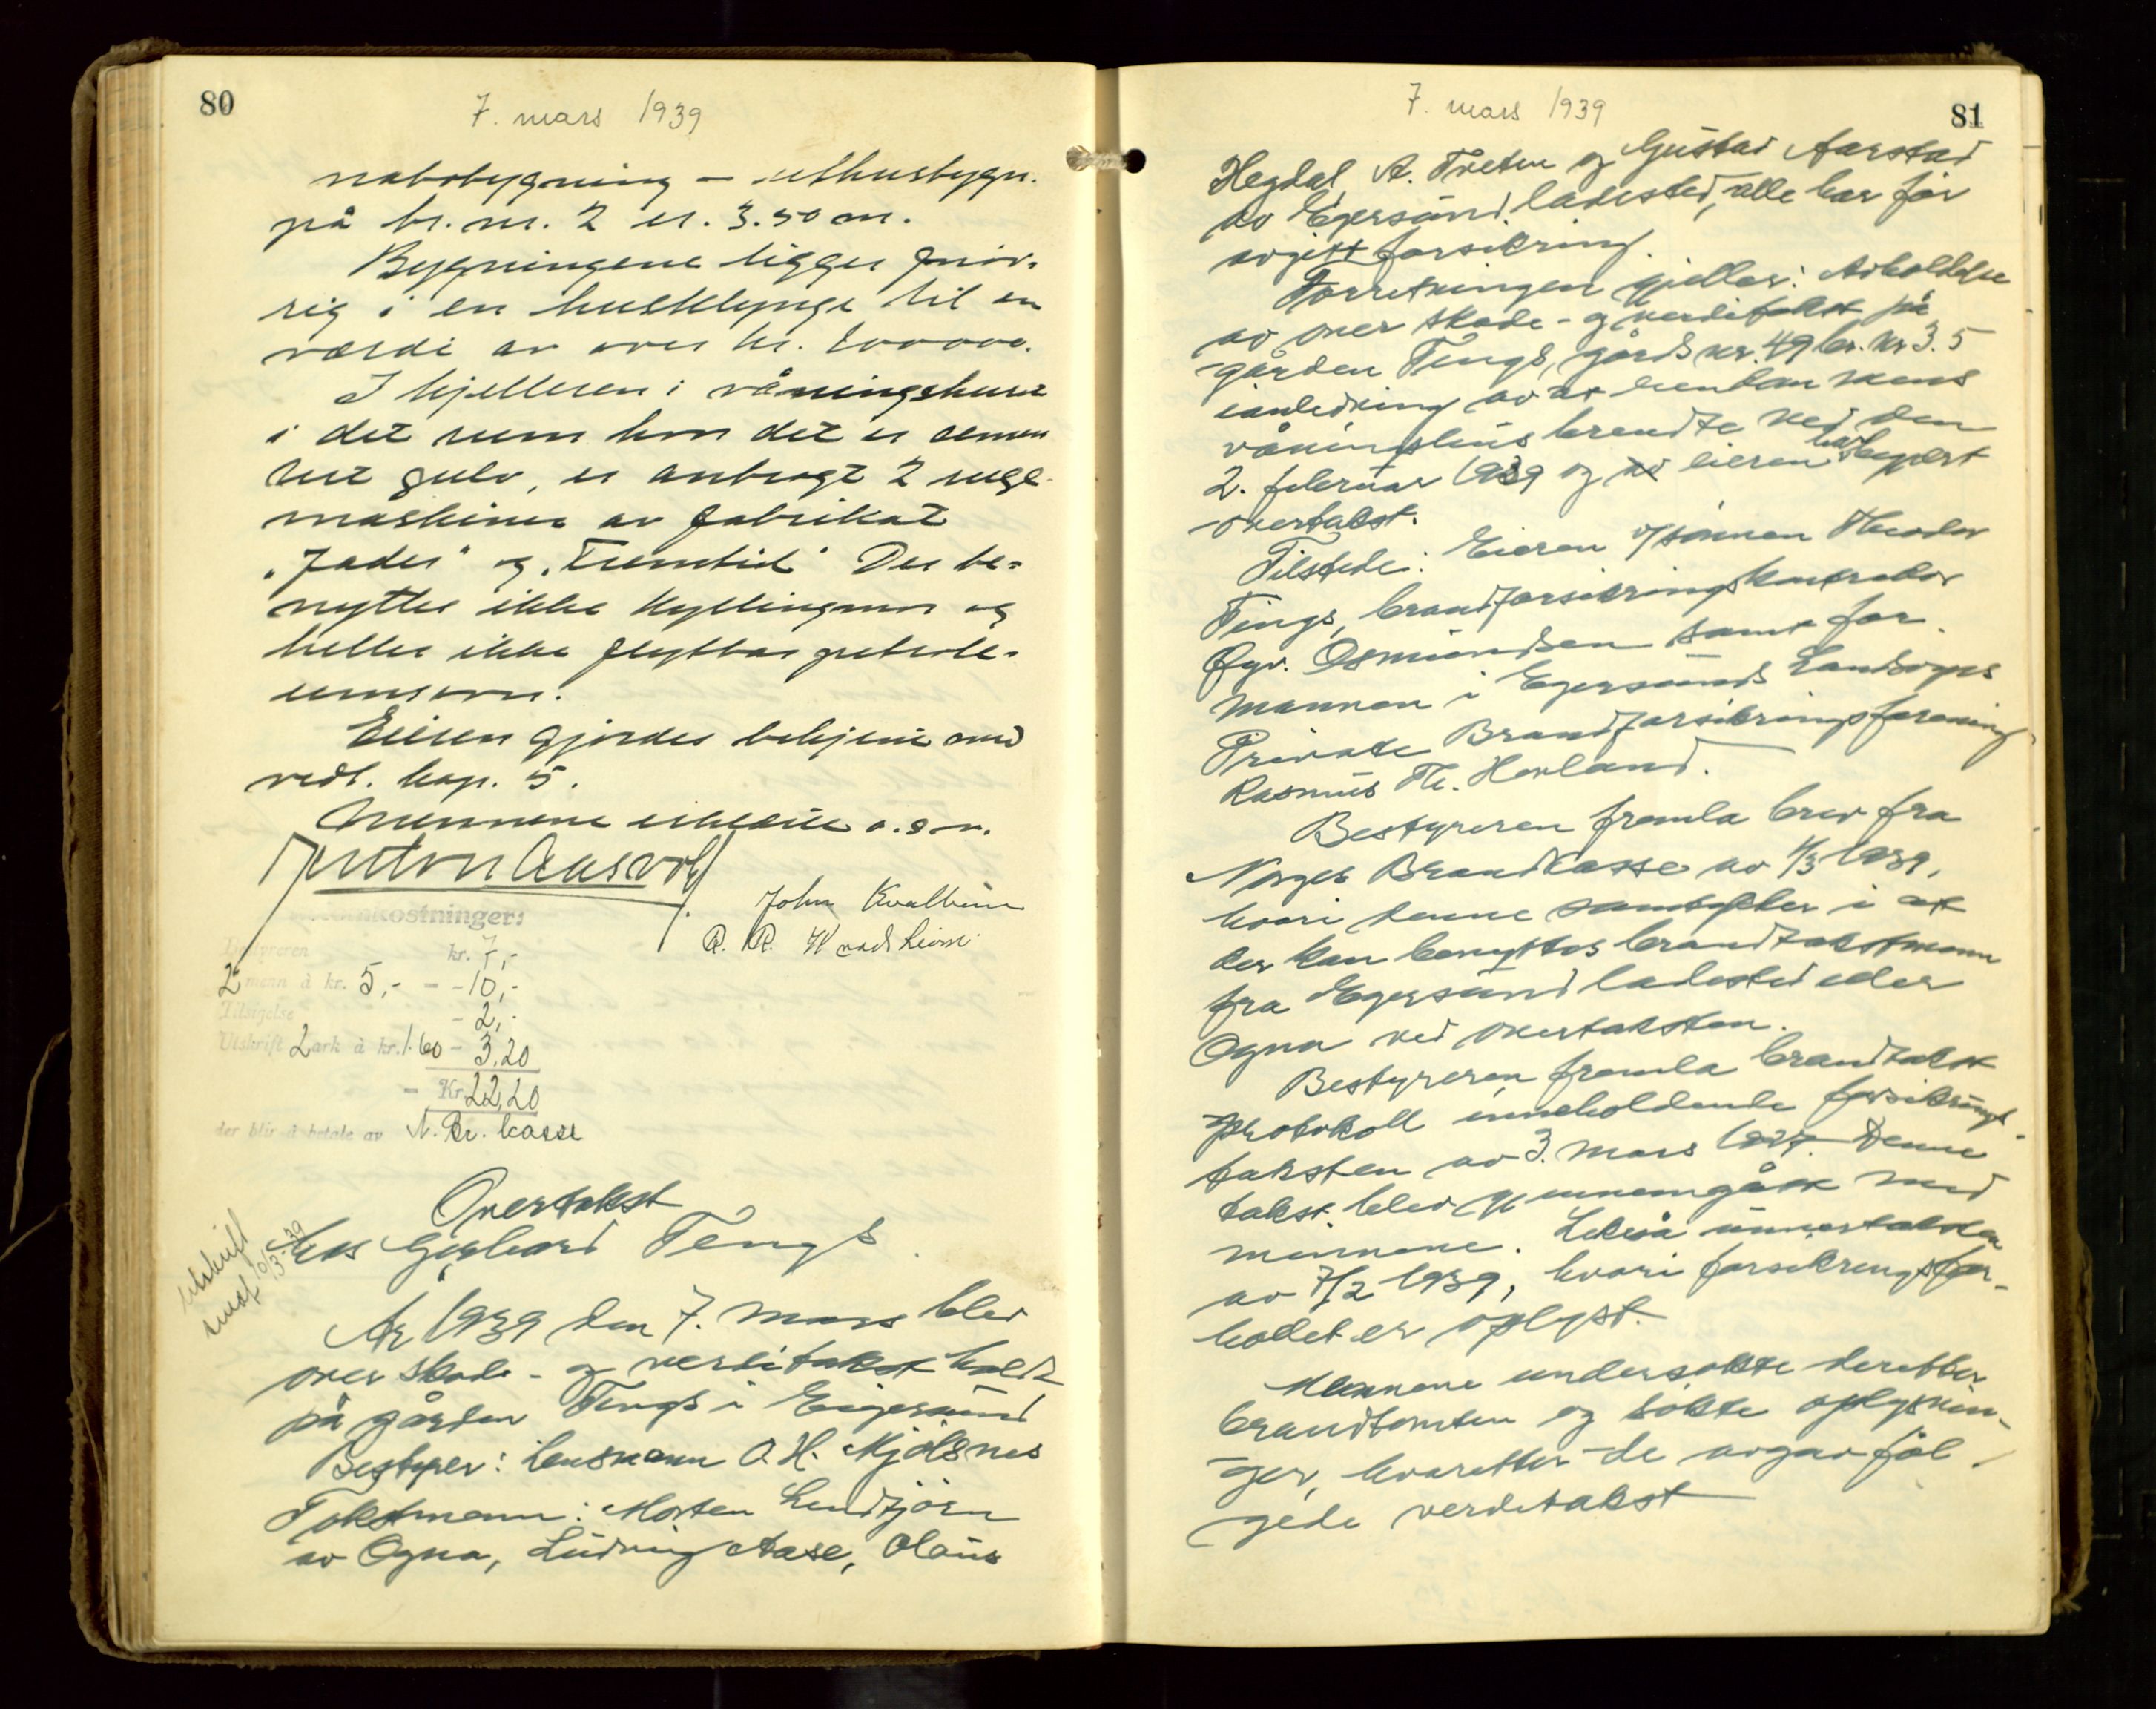 80
7. mars 1939
nabobygning - uthusbygn.
på br. nr. 2 er 3.50 m.
Bygningene ligger forøv-
rig i en husklynge til en
værdi av over kr.
I kjelleren i våningshuset
i det rum hvor det er semen
tert gulv, er anbragt 2 ruge-
maskiner av fabrikat
"Jader" og "Fremtid" Der be-
nyttes ikke kyllingmor og
heller ikke flyttbar petrole-
umsovn.
Eieren gjordes bekjent med
vedt. kap. 5.
Mennene erklærte o.s.v.
John Kvalheim
R. R. Kvadsheim
Omkostninger:
Bestyreren kr. 7,-
2 menn à kr. 5,- - - 10,-
Tilsigelse - 2,-
Utskrift 2 ark à kr. 1.60 - 3.20
- Kr. 22,20
der blir å betale av N. Br. kasse
Utskrift
sendt 10/3-39
Overtakst
hos Gerhard Tengs.
År 1939 den 7. mars blev
over skade- og verditakst holdt
på gården Tengs i Eigersund
Bestyrer: Lensmann O. H. Mjølsnes
Takstmenn: Morten Lindtjørn
av Ogna, Ludvig Aase, Olaus
7. mars 1939
81
Hegdal, A. Treten og Gustav Aarstad
av Egersund ladested, alle har før
avgitt forsikring.
Forretningen gjelder: Avholdelse
av over skade- og verditakst på
gården Tengs, gårds nr. 49 br. nr 3.5
ianledning av at hendan mens
våningshus brendte ned den
2. februar 1939 og eieren har begjært
overtakst.
Tilstede: Eieren v/sønnen Theodor
Tengs, brandforsikringskontrolør
Øgv. Osmundsen samt for
mannen i Egersunds Landsogns
Private Brandforsikringsforening
Rasmus Th. Hovland.
Bestyreren fremla brev fra
Norges Brandkasse av 4/3 1939,
hvori denne samtykker i at
der kan benyttes brandtakstmenn
fra Egersund ladested eller
Ogna ved overtaksten.
Bestyreren fremla brandtakst
protokoll inneholdende forsikrings-
taksten av 3. mars 1927. Denne
takst blev gjennemgått med
mennene. Likeså undertaksten
av 7/2 1939, hvori forsikringsfor-
holdet er oplyst.
Mennene undersøkte derefter
brandtomten og søkte oplysnin-
ger, hvorefter de avgav føl-
gede verditakst